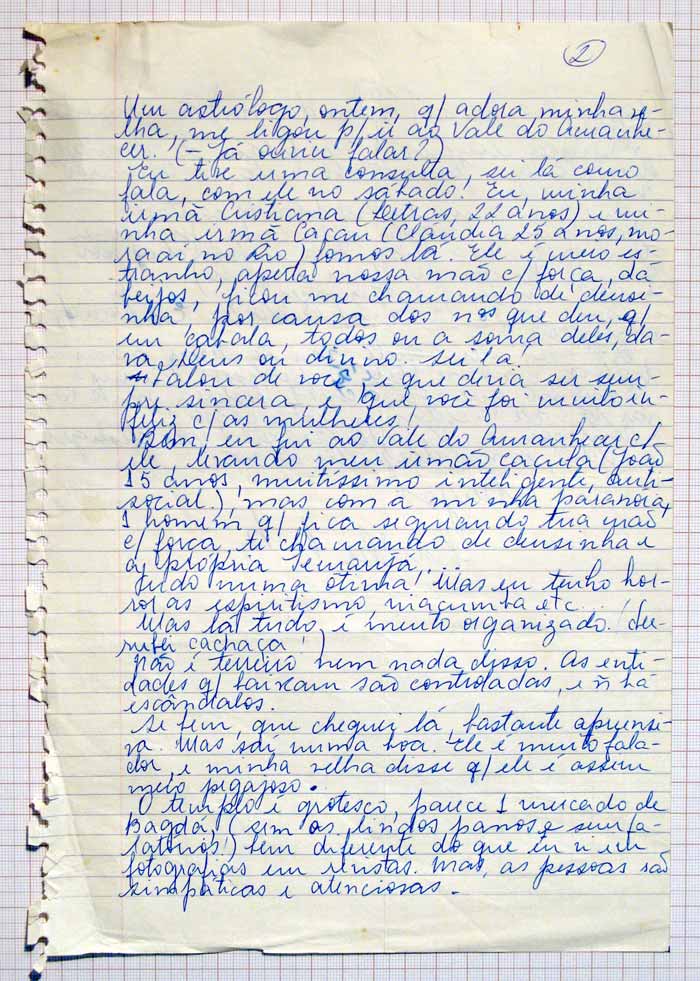 2
Um astrólogo, ontem, q/ adora minha ve-
lha, me ligou p/ ir ao Vale do Amanhe-
cer. (– Já ouviu falar?)
Eu tive uma consulta, sei lá como
fala, com ele no sábado. Eu, minha
irmã Cristiana (Letras, 22 anos) e mi-
nha irmã Cacau (Claudia 25 anos, mo-
ra aí no Rio) fomos lá. Ele é meio es-
tranho, aperta nossa mão c/ força, dá
beijos, ficou me chamando de deusi-
nha, por causa dos nos que deu, q/
em cabala, todos ou a soma deles, da-
va Deus ou divino. Sei lá.
Falou de você, e que devia ser sem-
pre sincera, e que você foi muito in-
feliz c/ as mulheres,
Bom, eu fui ao Vale do Amanhecer c/
ele, levando meu irmão caçula (João
15 anos, muitíssimo inteligente, anti-
social.), mas com a minha paranoia,
1 homem q/ fica segurando tua mão
c/ força, te chamando de deusinha e
a própria Iemanjá,...
Tudo numa ótima! Mas eu tenho hor-
ror as espiritismo, macumba etc...
Mas lá tudo é muito organizado.
cachaça!)
Não é terreiro nem nada disso. As enti-
dades q/ baixam são controladas, e ñ há
escândalos.
Se bem, que cheguei lá, bastante apreensi-
va. Mas saí numa boa. Ele é muito fala-
dor, e minha velha disse q/ ele é assim
meio pegajoso.
O templo é grotesco, parece 1 mercado de
Bagdá, (sem os lindos panos e sem fa-
latórios!) bem diferente do que eu vi em
fotografias em revistas. Mas, as pessoas são
simpáticas e atenciosas.